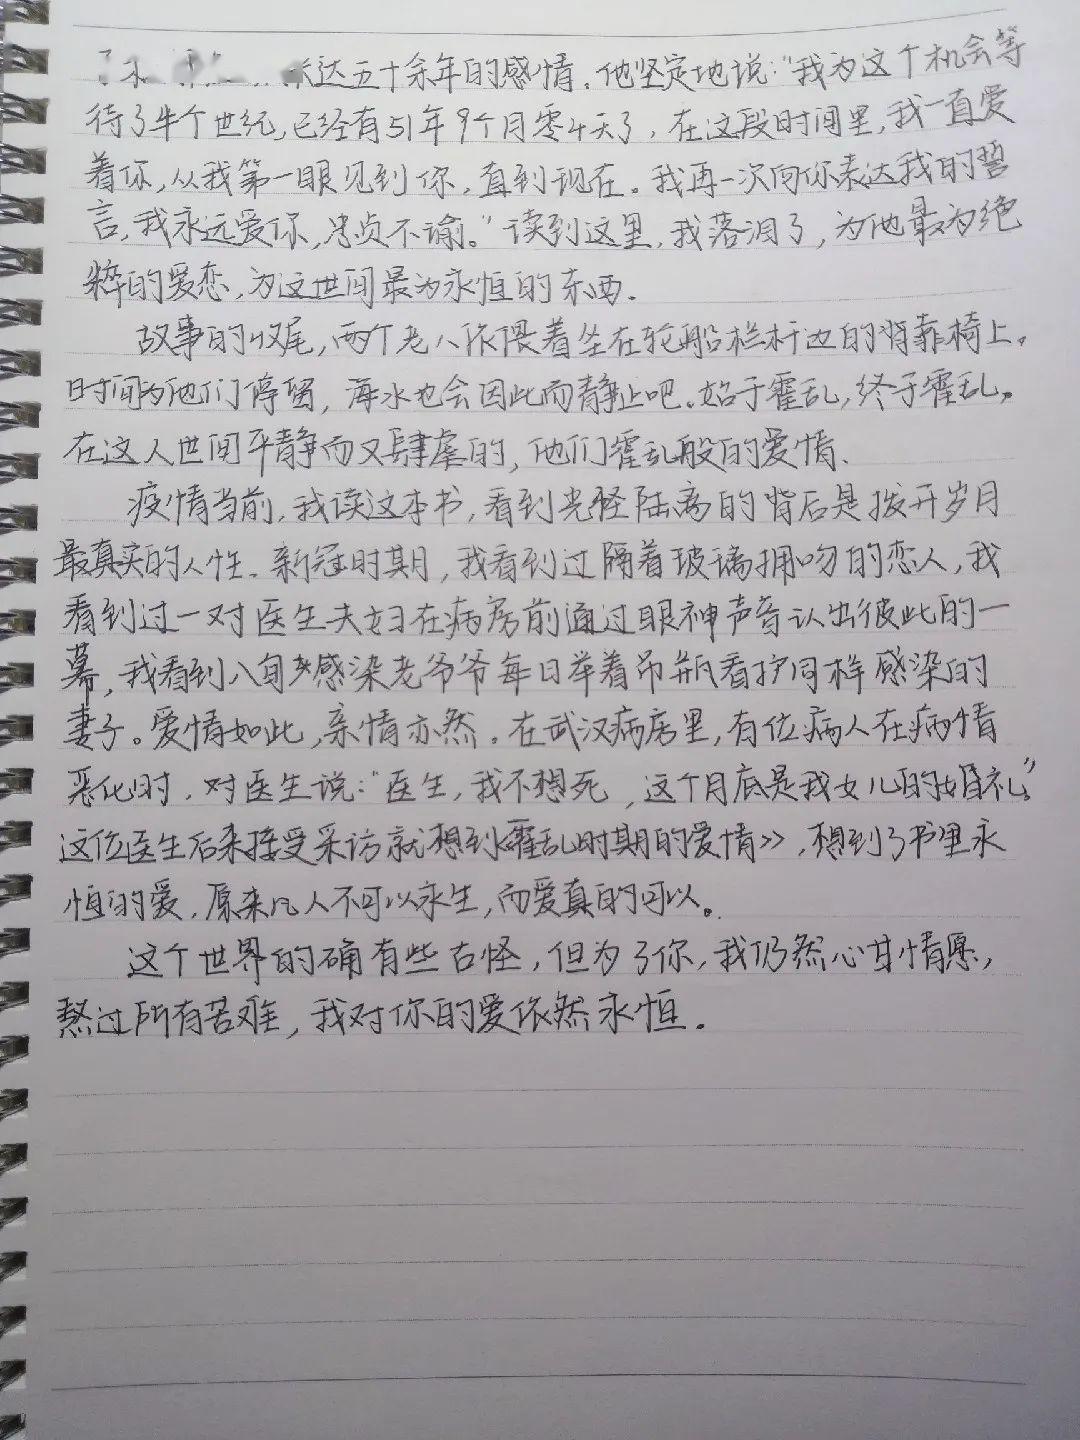 达五十余年的感情。他坚定地说：“我为这个机会等
待了半个世纪，已经有51年9个月零4天了，在这段时间里，我一直爱
着你，从我第一眼见到你，直到现在。我再一次向你表达我的誓
言，我永远爱你，忠贞不谕。”读到这里，我落泪了，为他最为绝
粹的爱恋，为这世间最为永恒的东西。
故事的收尾，两个老人依偎着坐在轮船栏杆边的背靠椅上。
时间为他们停留，海水也会因此而静止吧。始于霍乱，终于霍乱。
在这人世间平静而又肆虐的，他们霍乱般的爱情。
疫情当前，我读这本书，看到光怪陆离的背后是拨开岁月
最真实的人性。新冠时期，我看到过隔着玻璃拥吻的恋人，我
看到过一对医生夫妇在病房前通过眼神声音认出彼此的一
幕，我看到八旬感染老爷爷每日举着吊瓶看护同样感染的
妻子。爱情如此，亲情亦然。在武汉病房里，有位病人在病情
恶化时，对医生说：“医生，我不想死，这个月底是我女儿的婚礼。”
这位医生后来接受采访就想到《霍乱时期的爱情》，想到了书里永
恒的爱，原来凡人不可以永生，而爱真的可以。
这个世界的确有些古怪，但为了你，我仍然心甘情愿，
熬过所有苦难，我对你的爱依然永恒。